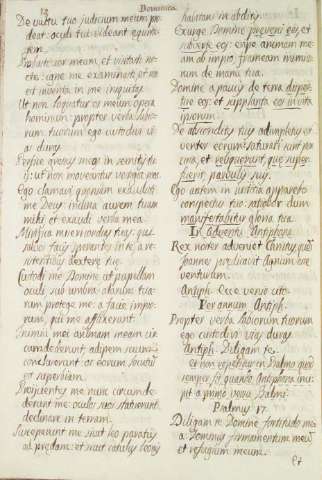 Dominica
De vultu tuo judicium meum pro
deat: oculi tui videant equita
tem.
Probasti cor meum, et visitasti no
cte: igne me examinasti, et non
est inventa in me iniquitas.
Ut non loquatur os meum opera
hominum: propter verba labio
rum tuorum ego custodivi vi
as duras.
Perfice gressus meos in semitis tu
is: ut non moveantur vestigia mea.
Ego clamavi quoniam exaudisti
me Deus: inclina aurem tuam
mihi, et exaudi verba mea.
Mirifica misericordias tuas: qui
salvos facis sperantes in te, a re
sistentibus dextere tue.
Custodi me Domine ut pupillam
oculi: sub umbra alarum tua
rum protege me: a facie impio
rum, qui me afflixerunt.
Inimici mei animam meam cir
cumdederunt, adipem suum
concluserunt: os eorum locutum
est superbiam.
Projicientes me nunc circumde
derunt me: oculos suos statuerunt
declinare in terram.
Susceperunt me, sicut leo paratus
ad predam: et sicut catulus leonis
habitans in abditis.
Exurge Domine preveni eos, et
subverte eos: eripe animam me
am ab impio, frameam inimico
rum de manu tua.
Domine a paucis de terra disper
tire eos: et supplanta eos in vita
ipsorum.
De absconditis tuis adimpletus est
venter eorum: saturati sunt por
cina, et reliquerunt que super
fuerunt parvulis suis.
Ego autem in justitia apparebo
conspectui tuo: satiabor dum
manifestabitur gloria tua.
In Adventu. Antiphona.
Rex noster adveniet Christus quem
Joannes predicavit Agnum esse
venturum.
Antiph. Ecce venio cito
Per annum Antiph.
Propter verba labiorum tuorum
ego custodivi vias duras.
Antiph. Diligam te.
Psalmus 17.
Diligam te Domine fortitudo me
a: Dominus firmamentum meum
et refugium meum.
Et